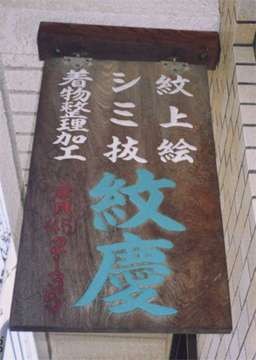 紋上絵
シミ抜
着物整理加工
紋慶